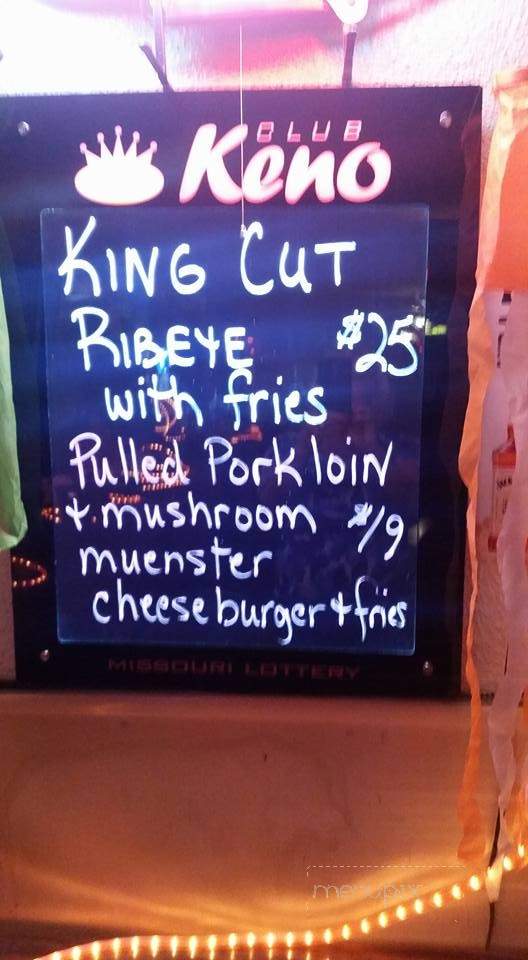 CLUB
Keno
KING CUT
RIBEYE $25
with fries
Pulled Pork loin
+ mushroom $19
muenster
cheeseburger + fries
MISSOURI LOTTERY
menupix